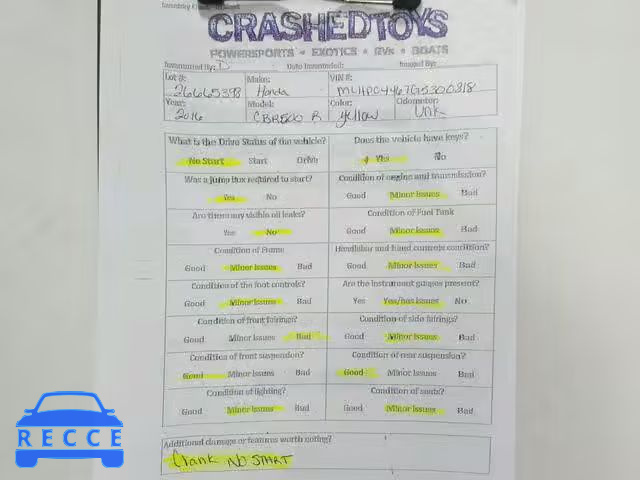 CRASHEDTOYS
POWERSPORTS • EXOTICS • RVs • BOATS
Inventoried By: D Date Inventoried: Imaged By:
Lot #: Make: VIN #:
26665398 Honda MLHPC4467G5300318
Year: Model: Color: Odometer:
2016 CBR500 R yellow Unk
What is the Drive Status of the vehicle? Does the vehicle have keys?
No Start Start Drive Yes No
Was a jump box required to start? Condition of engine and transmission?
Yes No Good Minor Issues Bad
Are there any visible oil leaks? Condition of Fuel Tank
Yes No Good Minor Issues Bad
Condition of Frame Handlebar and hand controls condition?
Good Minor Issues Bad Good Minor Issues Bad
Condition of the foot controls? Are the instrument gauges present?
Good Minor Issues Bad Yes Yes/has issues No
Condition of front fairings? Condition of side fairings?
Good Minor Issues Bad Good Minor Issues Bad
Condition of front suspension? Condition of rear suspension?
Good Minor Issues Bad Good Minor Issues Bad
Condition of lighting? Condition of seats?
Good Minor Issues Bad Good Minor Issues Bad
Additional damage or features worth noting?
Crank NO START
RECCE